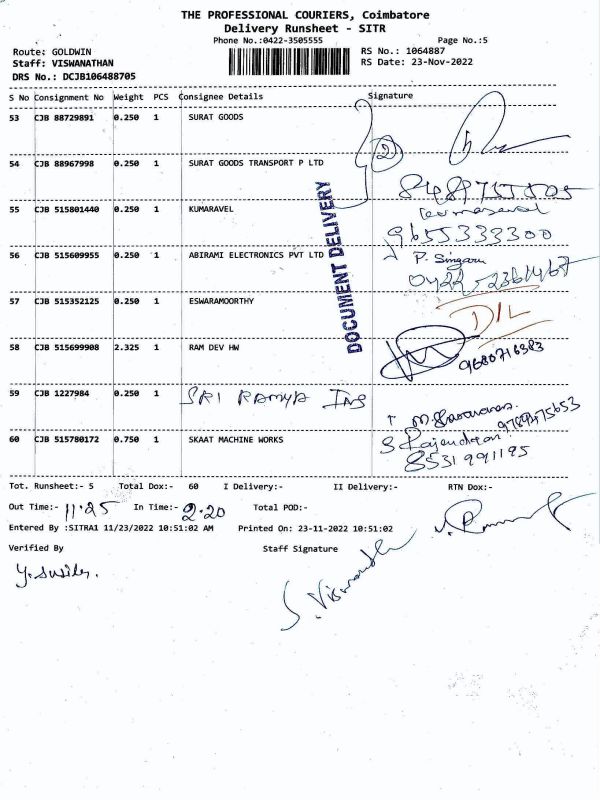 THE PROFESSIONAL COURIERS, Coimbatore
Delivery Runsheet - SITR
Phone No.:0422-3505555 Page No.:5
Route: GOLDWIN RS No.: 1064887
Staff: VISWANATHAN RS Date: 23-Nov-2022
DRS No.: DCJB106488705
S No Consignment No Weight PCS Consignee Details Signature
53 CJB 88729891 0.250 1 SURAT GOODS
2
54 CJB 88967998 0.250 1 SURAT GOODS TRANSPORT P LTD
55 CJB 515801440 0.250 1 KUMARAVEL
9655333300
56 CJB 515609955 0.250 1 ABIRAMI ELECTRONICS PVT LTD P. Singaru
57 CJB 515352125 0.250 1 ESWARAMOORTHY D/L
58 CJB 515699908 2.325 1 RAM DEV HW 9680716383
59 CJB 1227984 0.250 1 SRI RAMYA Ind
60 CJB 515780172 0.750 1 SKAAT MACHINE WORKS S Rajendran
8531991195
DOCUMENT DELIVERY
Tot. Runsheet:- 5 Total Dox:- 60 I Delivery:- II Delivery:- RTN Dox:-
Out Time:- 11.25 In Time:- 2.20 Total POD:-
Entered By :SITRA1 11/23/2022 10:51:02 AM Printed On: 23-11-2022 10:51:02
Verified By Staff Signature
S. Viswanath